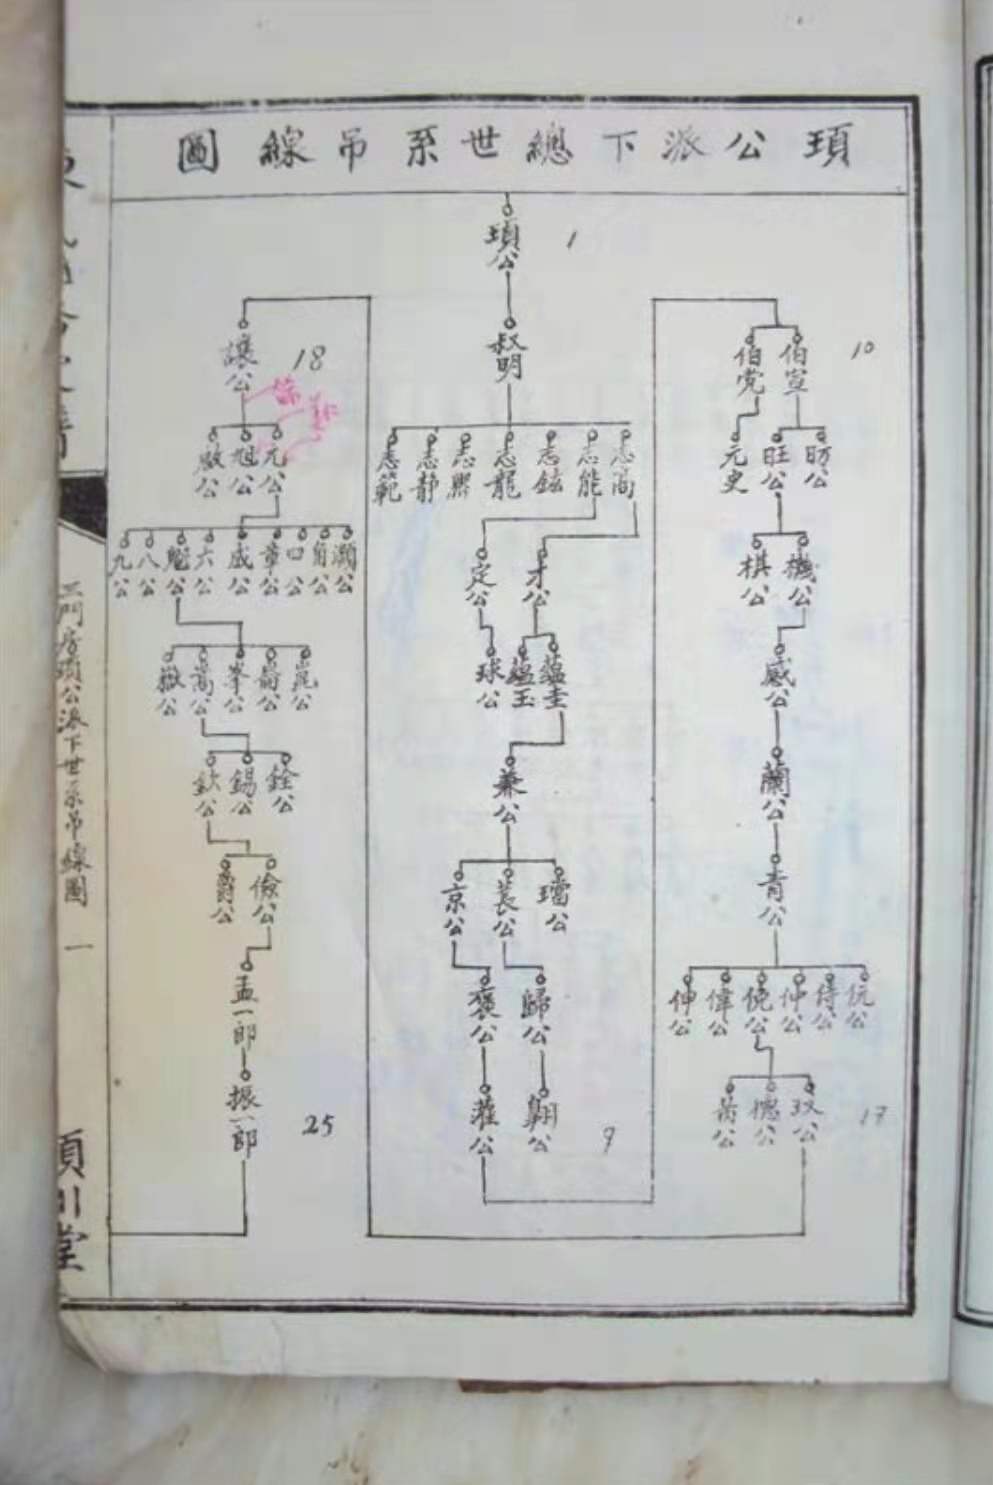 頊公派下總世系吊線圖
頊公
1
叔明
志高 志能 志鉉 志龍 志熙 志靜 志範
才公 定公
蘊圭 蘊玉 球公
兼公
璿公 萇公 京公
歸公 褒公
翔公 灌公
9
伯宣 伯党
10
昉公 旺公 元史
機公 棋公
感公
蘭公
青公
伉公 侍公 仲公 俛公 偉公 伸公
双公 德公 萬公
17
讓公
18
元公 旭公 啟公
灝公 自公 口公 章公 咸公 六公 魁公 八公 九公
崑公 崙公 峯公 嵩公 嶽公
銓公 錫公 欽公
儉公 爵公
孟一郎
振一郎
25
三門房頊公派下世系吊線圖
一
潁川堂